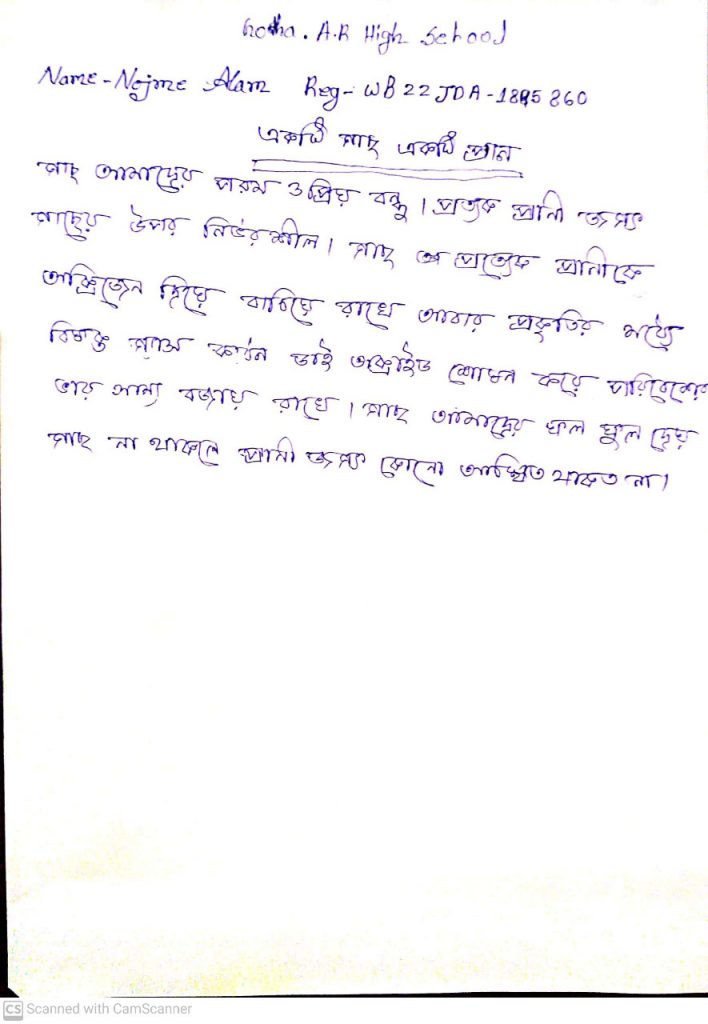 Gotha. A.R High School
Name - Nojme Alam Reg - WB22JDA-1895860
একটি গাছ একটি প্রান
গাছ আমাদের পরম ও প্রিয় বন্ধু। প্রত্যক প্রানী জগৎ
গাছের উপর নির্ভরশীল। গাছ প্রত্যেক প্রানীকে
অক্সিজেন দিয়ে বাচিয়ে রাখে আবার প্রকৃতির মধ্যে
বিষাক্ত গ্যাস কার্বন ডাই অক্সাইড শোষন করে পরিবেশের
ভার সাম্য বজায় রাখে। গাছ আমাদের ফল ফুল দেয়
গাছ না থাকলে প্রানী জগৎ কোনো অস্থিত থাকত না।
CS Scanned with CamScanner